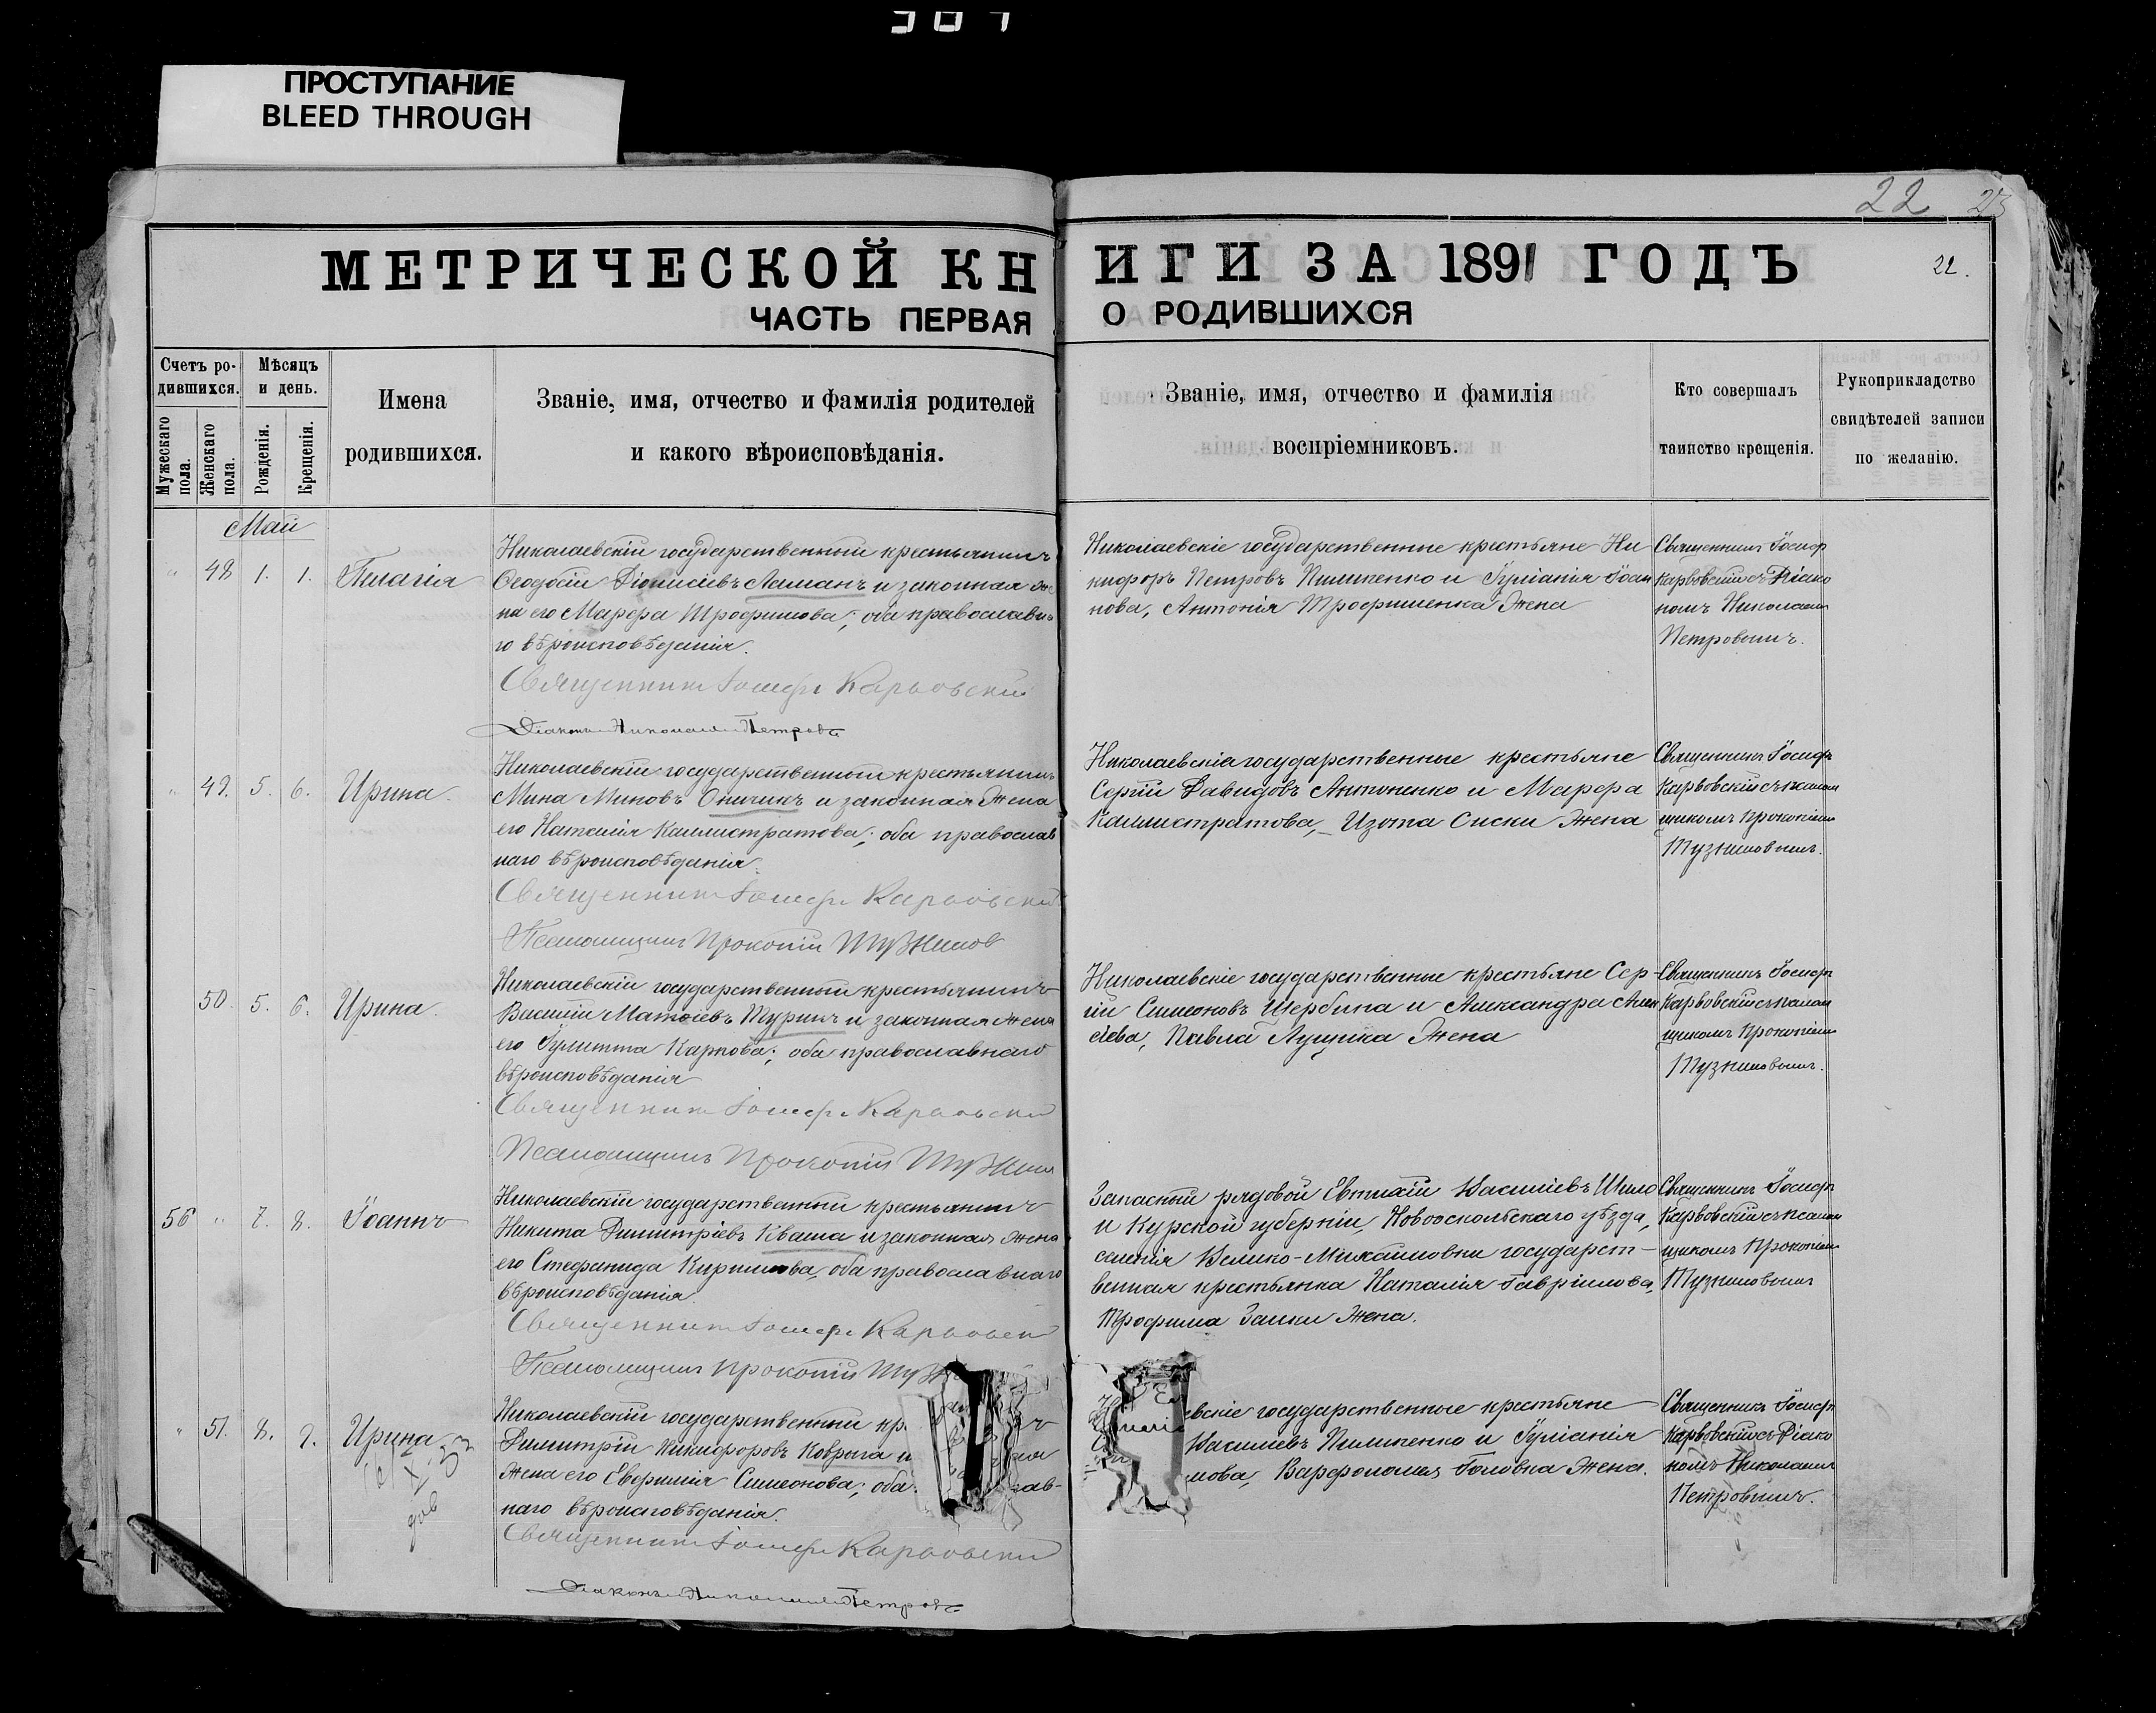 ПРОСТУПАНИЕ
BLEED THROUGH
22
МЕТРИЧЕСКОЙ КНИГИ ЗА 1891 ГОДЪ
22.
ЧАСТЬ ПЕРВАЯ О РОДИВШИХСЯ
Счетъ родившихся.
Мужескаго пола.
Женскаго пола.
Мѣсяцъ и день.
Рожденія.
Крещенія.
Имена родившихся.
Званіе, имя, отчество и фамилія родителей
и какого вѣроисповѣданія.
Званіе, имя, отчество и фамилія
воспріемниковъ.
Кто совершалъ
таинство крещенія.
Рукоприкладство
свидѣтелей записи
по желанію.
Май
" 48 1. 1. Пелагія
Николаевскій государственный крестьянинъ
Ѳеодосій Діонисіевъ Ламанъ и законная же
на его Марѳа Трофимова; оба православна
го вѣроисповѣданія.
Священникъ Іосифъ Карвовскій
Діаконъ Николай Петровъ
Николаевскіе государственные крестьяне Ни
кифоръ Петровъ Пилипенко и Іуліанія Іоан
нова, Антонія Трофименка жена
Священникъ Іосифъ
Карвовскій съ Діако
номъ Николаемъ
Петровымъ.
" 49. 5. 6. Ирина.
Николаевскій государственный крестьянинъ
Мина Миновъ Оничикъ и законная жена
его Наталія Каллистратова; оба православ
наго вѣроисповѣданія.
Священникъ Іосифъ Карвовскій
Псаломщикъ Прокопій Тузниковъ
Николаевскіе государственные крестьяне
Сергій Давидовъ Антоненко и Марѳа
Каллистратова, Изота Сиски жена
Священникъ Іосифъ
Карвовскій съ псалом
щикомъ Прокопіемъ
50. 5. 6. Ирина.
Николаевскій государственный крестьянинъ
Василій Матѳіевъ Туринъ и законная жена
его Іулитта Карпова; оба православнаго
вѣроисповѣданія
Священникъ Іосифъ Карвовскій
Псаломщикъ Прокопій
Николаевскіе государственные крестьяне Сер-
гій Симеоновъ Щербина и Александра Алек
сіева, Павла Лущика жена
Священникъ Іосифъ
Карвовскій съ псалом
щикомъ Прокопіемъ
56 " 7. 8. Іоаннъ
Николаевскій государственный крестьянинъ
Никита Димитріевъ Кваша и законная жена
его Стефанида Кириллова, оба православнаго
вѣроисповѣданія.
Священникъ Іосифъ Карвовскій
Псаломщикъ Прокопій
Запасный рядовой Евтихій Василіевъ Шило
и Курской губерніи, Новооскольскаго уѣзда,
селенія Велико-Михайловки государст-
венная крестьянка Наталія Гавріилова,
Трофима Заики жена.
Священникъ Іосифъ
Карвовскій съ псалом
щикомъ Прокопіемъ
" 51. 8. 9. Ирина
Николаевскій государственный кр
Димитрій Никифоровъ Коврага и
жена его Евфимія Симеонова; оба
наго вѣроисповѣданія.
Священникъ Іосифъ Карвовскій
Діаконъ Николай Петровъ
евскіе государственные крестьяне
Василіевъ Пилипенко и Іуліанія
мова, Варфоломея Головка жена.
Священникъ Іосифъ
Карвовскій съ Діако
номъ Николаемъ
Петровымъ.